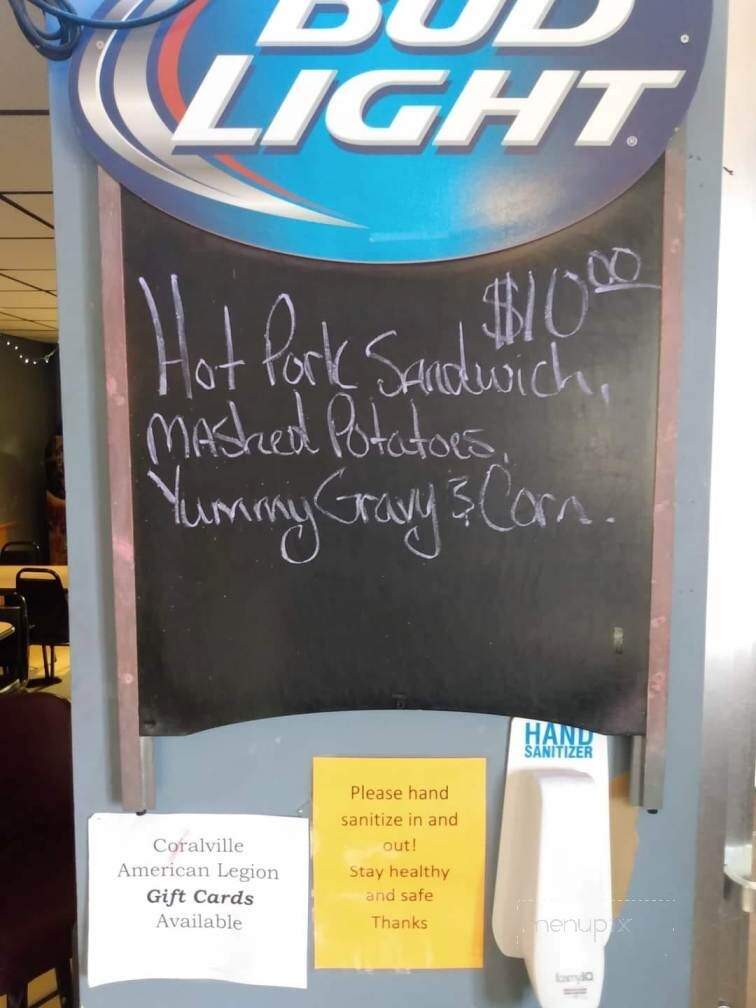 BUD
LIGHT®
$10.00
Hot Pork Sandwich,
Mashed Potatoes,
Yummy Gravy & Corn.
HAND
SANITIZER
Please hand
sanitize in and
out!
Stay healthy
and safe
Thanks
Coralville
American Legion
Gift Cards
Available
menupix